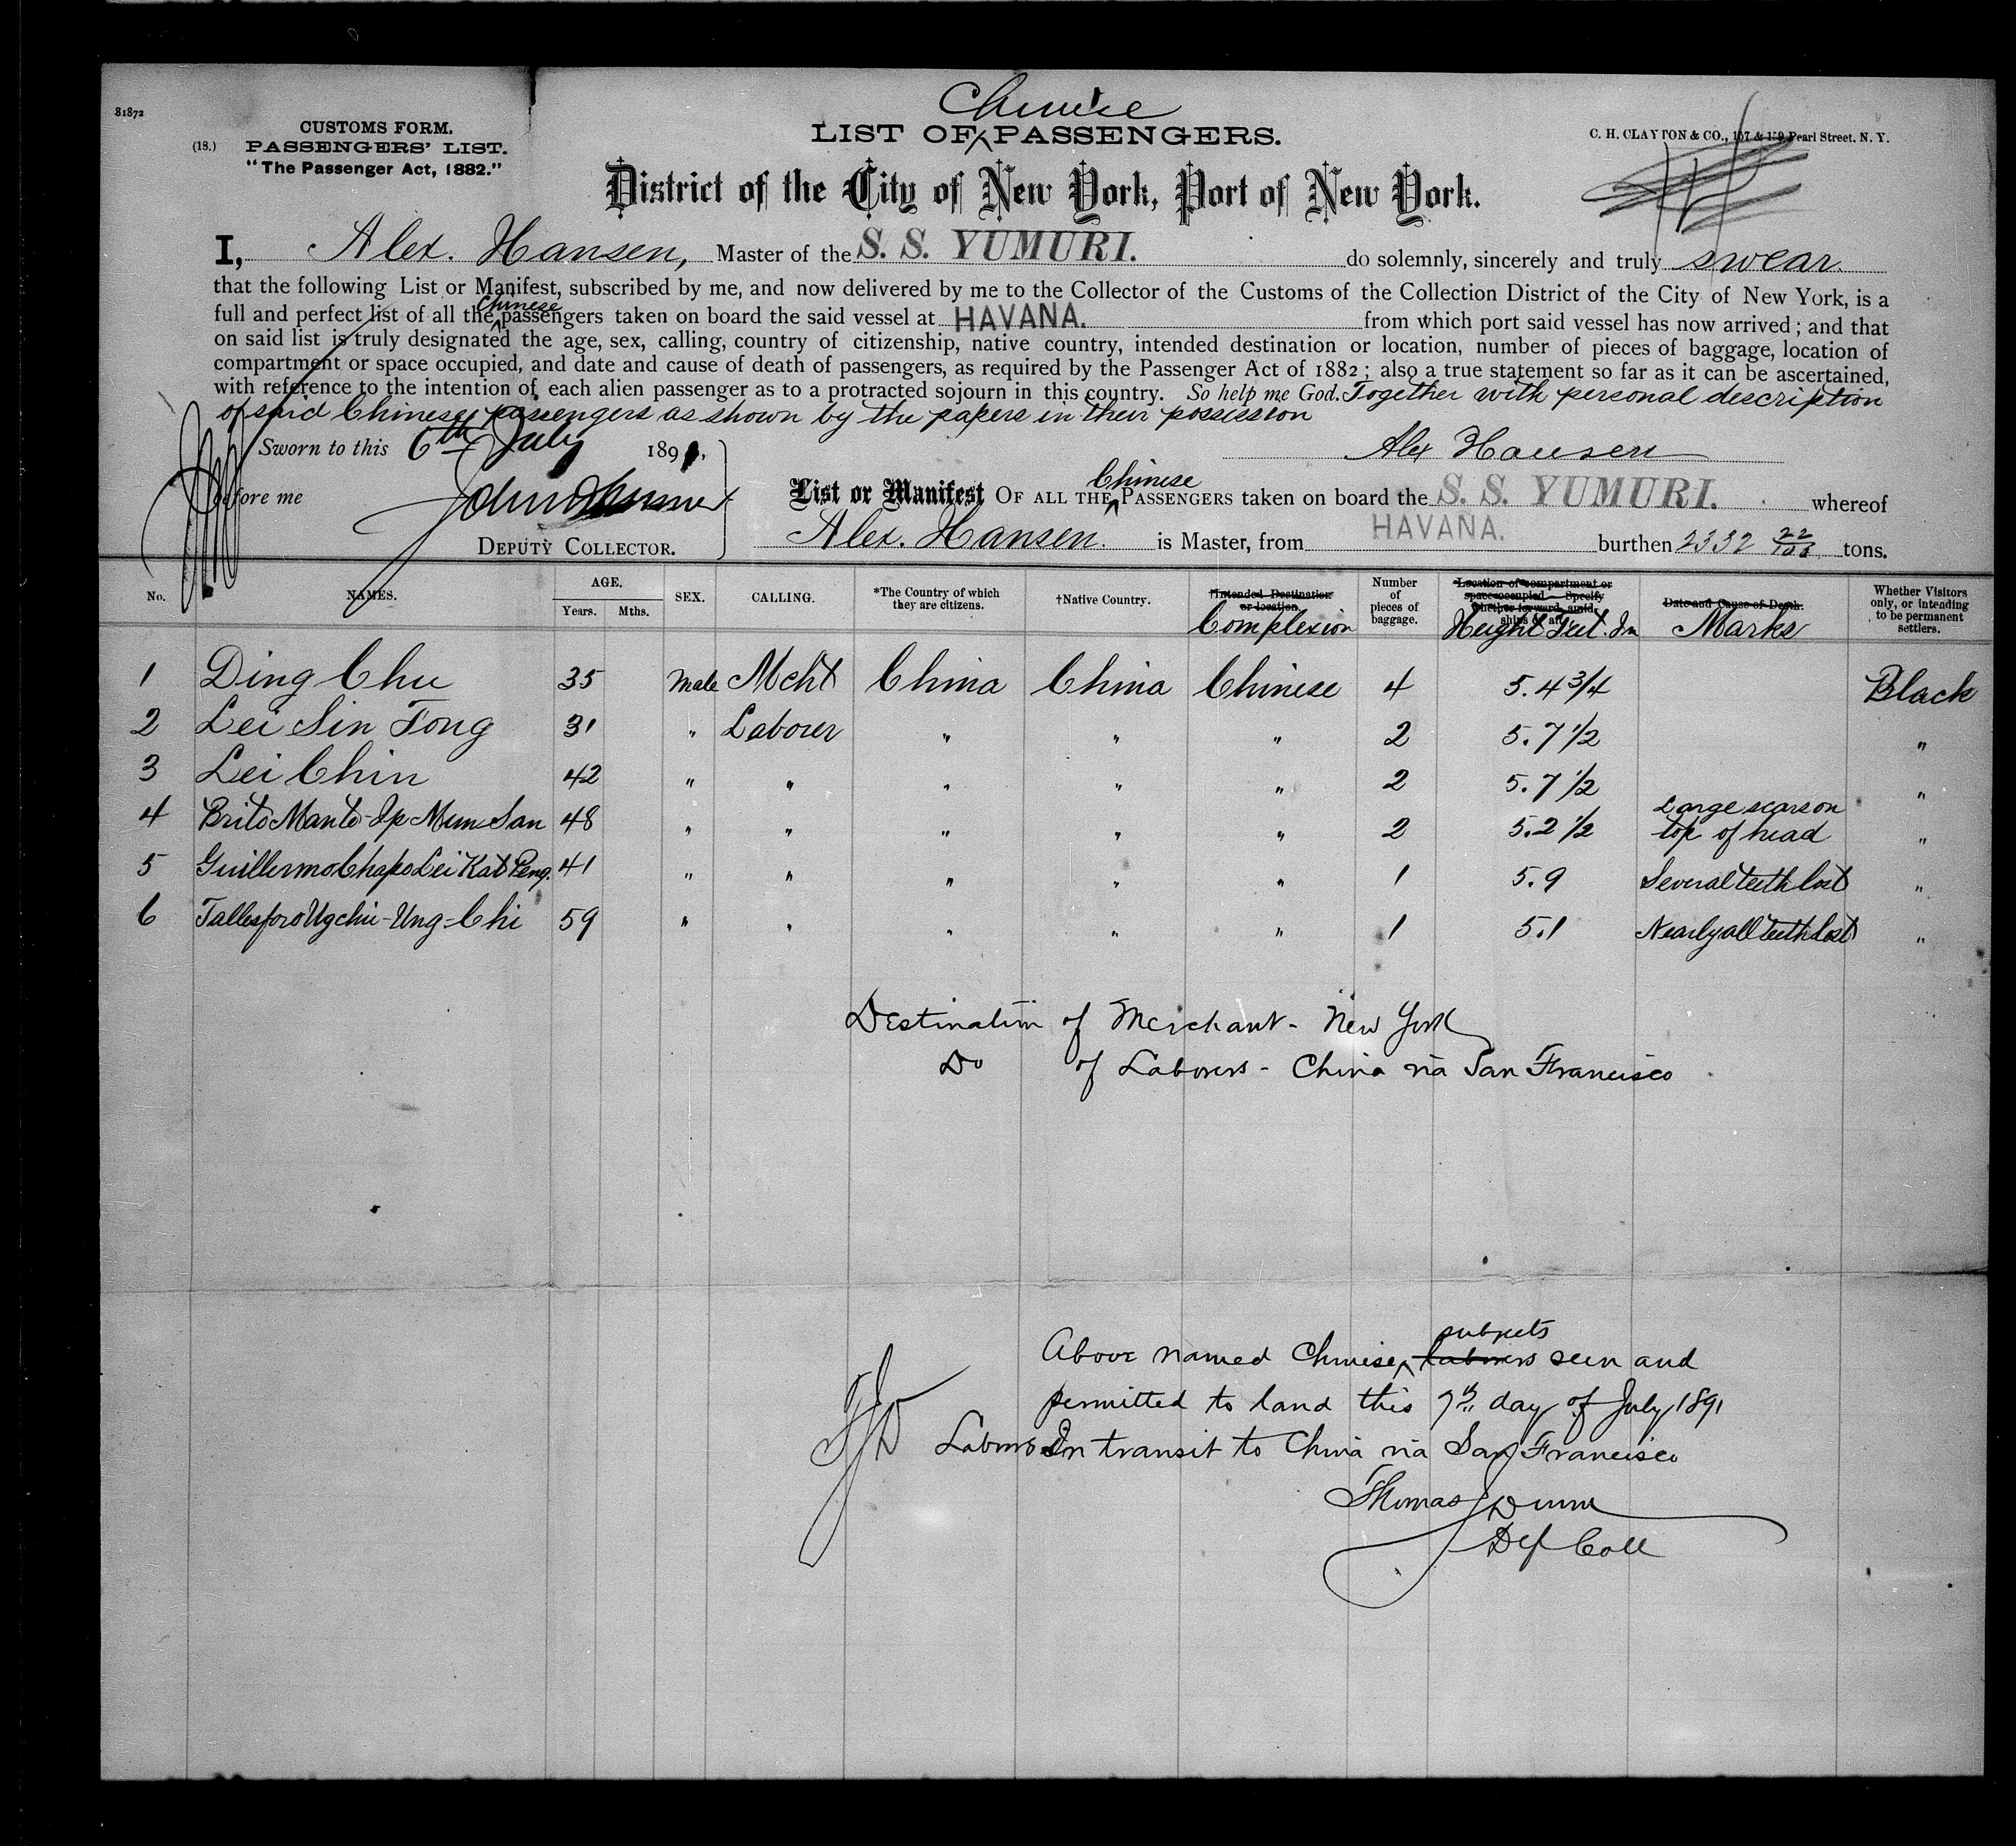 81872
CUSTOMS FORM.
(18.) PASSENGERS' LIST.
"The Passenger Act, 1882."
Chinese
LIST OF PASSENGERS.
C. H. CLAYTON & CO., 157 & 159 Pearl Street, N. Y.
District of the City of New York, Port of New York.
I, Alex. Hansen, Master of the S. S. YUMURI. do solemnly, sincerely and truly swear
that the following List or Manifest, subscribed by me, and now delivered by me to the Collector of the Customs of the Collection District of the City of New York, is a
full and perfect list of all the Chinese passengers taken on board the said vessel at HAVANA. from which port said vessel has now arrived; and that
on said list is truly designated the age, sex, calling, country of citizenship, native country, intended destination or location, number of pieces of baggage, location of
compartment or space occupied, and date and cause of death of passengers, as required by the Passenger Act of 1882; also a true statement so far as it can be ascertained,
with reference to the intention of each alien passenger as to a protracted sojourn in this country. So help me God. Together with personal description
of said Chinese passengers as shown by the papers in their possession
Sworn to this 6th July 1891,
Alex Hansen
before me
DEPUTY COLLECTOR.
List or Manifest OF ALL THE Chinese PASSENGERS taken on board the S. S. YUMURI. whereof
Alex. Hansen. is Master, from HAVANA. burthen 2332 22/100 tons.
No. NAMES. AGE. Years. Mths. SEX. CALLING. *The Country of which they are citizens. †Native Country. †Intended Destination or location. Complexion Number of pieces of baggage. Location of compartment or space occupied—Specify whether forward, amidships or aft. Height Feet. In Date and Cause of Death. Marks Whether Visitors only, or intending to be permanent settlers.
1 Ding Chu 35 Male Mcht China China Chinese 4 5. 4 3/4 Black
2 Lei Sin Tong 31 " Laborer " " " 2 5. 7 1/2 "
3 Lei Chin 42 " " " " " 2 5. 7 1/2 "
4 Brito Manto-Ip Mun San 48 " " " " " 2 5. 2 1/2 Large scars on top of head "
5 Guillermo Chapo Lei Kat Peng. 41 " " " " " 1 5. 9 Several teeth lost "
6 Tallesforo Ugchu-Ung-Chi 59 " " " " " 1 5. 1 Nearly all teeth lost "
Destination of Merchant - New York
Do of Laborers - China via San Francisco
Above named Chinese subjects laborers seen and
permitted to land this 7th day of July 1891
TJD Laborers In transit to China via San Francisco
Thomas J Dunn
Dep Coll